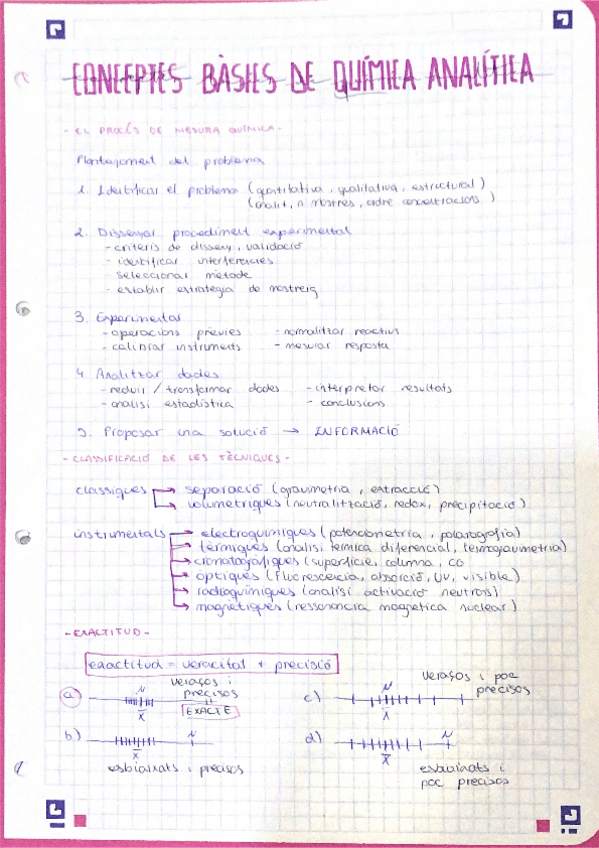 CONCEPTES BÀSICS DE QUÍMICA ANALÍTICA
- EL PROCÉS DE MESURA QUÍMICA -
Plantejament del problema
1. Identificar el problema (quantitativa, qualitativa, estructural)
(analit, n mostres, ordre concentracions)
2. Dissenyar procediment experimental
- criteris de disseny, validació
- identificar interferències
- seleccionar mètode
- establir estratègia de mostreig
3. Experimentar
- operacions prèvies - normalitzar reactius
- calibrar instruments - mesurar resposta
4. Analitzar dades
- reduir / transformar dades - interpretar resultats
- anàlisi estadística - conclusions
5. Proposar una solució → INFORMACIÓ
- CLASSIFICACIÓ DE LES TÈCNIQUES -
clàssiques → separació (gravimetria, extracció)
→ volumètriques (neutralització, redox, precipitació)
instrumentals → electroquímiques (potenciometria, polarografia)
→ tèrmiques (anàlisi tèrmica diferencial, termogravimetria)
→ cromatogràfiques (superfície, columna, CG
→ òptiques (fluorescència, absorció, UV, visible)
→ radioquímiques (anàlisi activació neutrons)
→ magnètiques (ressonància magnètica nuclear)
- EXACTITUD -
exactitud = veracitat + precisió
a) veraços i precisos
EXACTE
x̄
c) veraços i poc precisos
x̄
b) x̄
esbiaixats i precisos
d) x̄
esbiaixats i
poc precisos